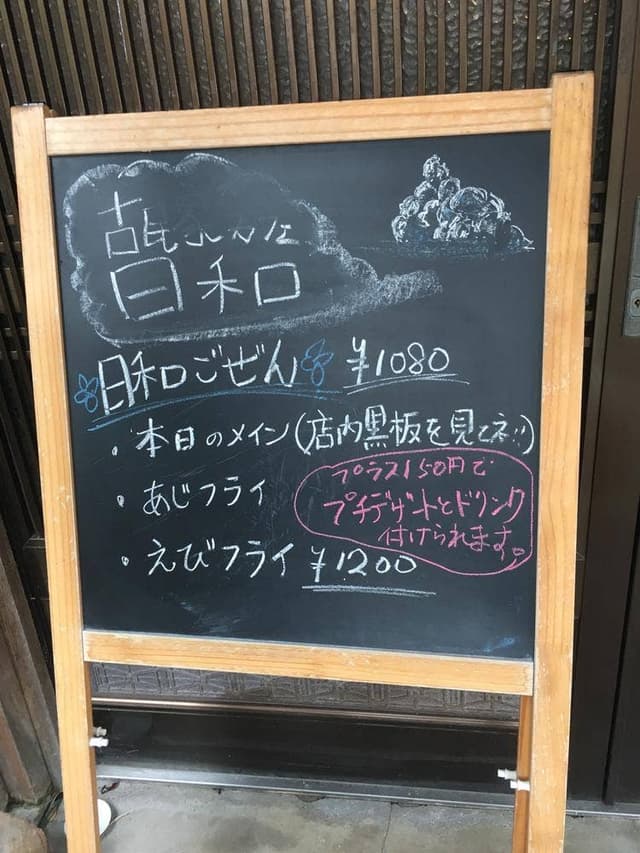 古民
日和
日和ごぜん ¥1080
・本日のメイン(店内黒板を見てネ!!)
・あじフライ
・えびフライ ¥1200
プラス150円で
プチデザートとドリンク
付けられます。